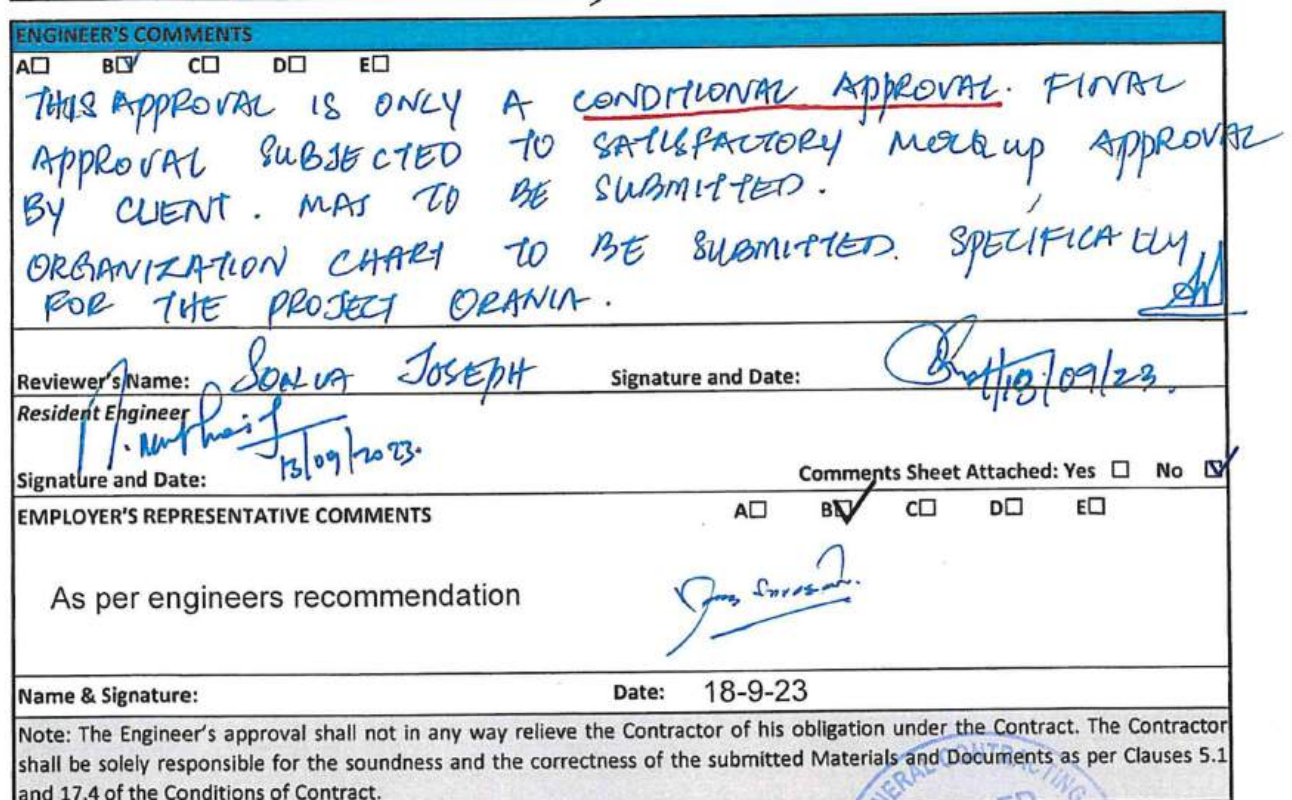 ENGINEER'S COMMENTS
A☐ B☑ C☐ D☐ E☐
THIS APPROVAL IS ONLY A CONDITIONAL APPROVAL. FINAL
APPROVAL SUBJECTED TO SATISFACTORY MOCKUP APPROVAL
BY CLIENT. MAS TO BE SUBMITTED.
ORGANIZATION CHART TO BE SUBMITTED. SPECIFICALLY
FOR THE PROJECT ORANIA.
Reviewer's Name: JOSEPH Signature and Date: 13/09/23.
Resident Engineer
13/09/2023.
Signature and Date: Comments Sheet Attached: Yes ☐ No ☑
EMPLOYER'S REPRESENTATIVE COMMENTS A☐ B☑ C☐ D☐ E☐
As per engineers recommendation
Name & Signature: Date: 18-9-23
Note: The Engineer's approval shall not in any way relieve the Contractor of his obligation under the Contract. The Contractor
shall be solely responsible for the soundness and the correctness of the submitted Materials and Documents as per Clauses 5.1
and 17.4 of the Conditions of Contract.